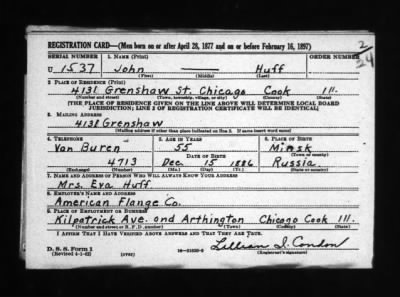 REGISTRATION CARD—(Men born on or after April 28, 1877 and on or before February 16, 1897)
SERIAL NUMBER 1. NAME (Print) ORDER NUMBER
U 1537 John — Huff
(First) (Middle) (Last)
2. PLACE OF RESIDENCE (Print)
4131 Grenshaw St. Chicago Cook Ill.
(Number and street) (Town, township, village, or city) (County) (State)
[THE PLACE OF RESIDENCE GIVEN ON THE LINE ABOVE WILL DETERMINE LOCAL BOARD
JURISDICTION; LINE 2 OF REGISTRATION CERTIFICATE WILL BE IDENTICAL]
3. MAILING ADDRESS
4131 Grenshaw
[Mailing address if other than place indicated on line 2. If same insert word same]
4. TELEPHONE 5. AGE IN YEARS 6. PLACE OF BIRTH
Van Buren 55 Minsk
DATE OF BIRTH (Town or county)
4713 Dec. 15 1886 Russia
(Exchange) (Number) (Mo.) (Day) (Yr.) (State or country)
7. NAME AND ADDRESS OF PERSON WHO WILL ALWAYS KNOW YOUR ADDRESS
Mrs. Eva Huff
8. EMPLOYER'S NAME AND ADDRESS
American Flange Co.
9. PLACE OF EMPLOYMENT OR BUSINESS
Kilpatrick Ave. and Arthington Chicago Cook Ill.
(Number and street or R. F. D. number) (Town) (County) (State)
I AFFIRM THAT I HAVE VERIFIED ABOVE ANSWERS AND THAT THEY ARE TRUE.
D. S. S. Form 1
(Revised 4-1-42) (over)
Lillian I. Condon
(Registrar's signature)